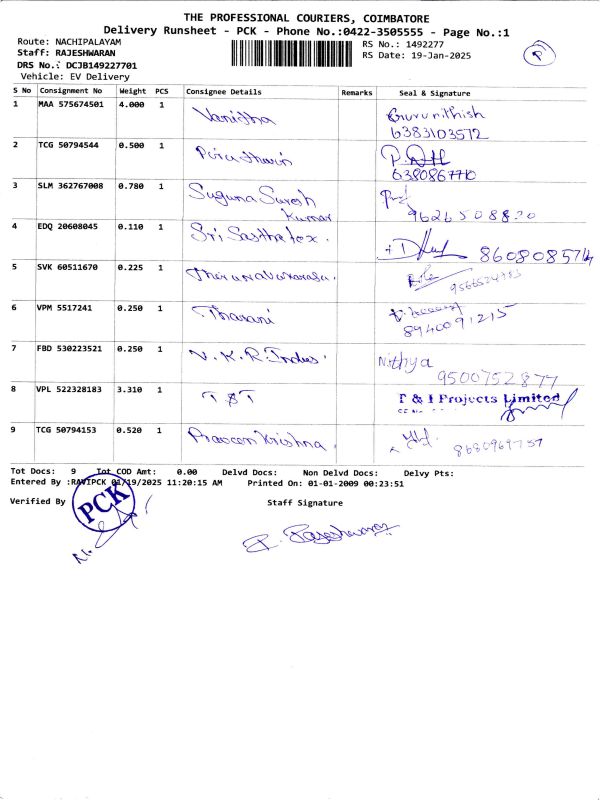 THE PROFESSIONAL COURIERS, COIMBATORE
Delivery Runsheet - PCK - Phone No.:0422-3505555 - Page No.:1
Route: NACHIPALAYAM
Staff: RAJESHWARAN
DRS No.: DCJB149227701
Vehicle: EV Delivery
RS No.: 1492277
RS Date: 19-Jan-2025
P
S No Consignment No Weight PCS Consignee Details Remarks Seal & Signature
1 MAA 575674501 4.000 1 Vanitha Guru nithish
6383103572
2 TCG 50794544 0.500 1
6380867710
3 SLM 362767008 0.780 1 Suguna Suresh
Kumar 9626508820
4 EDQ 20608045 0.110 1 Sri Sastha tex. 8608085714
5 SVK 60511670 0.225 1
6 VPM 5517241 0.250 1 Tharani
8940091215
7 FBD 530223521 0.250 1 V.K.R. Indus. Nithya
9500752877
8 VPL 522328183 3.310 1 T & T T & I Projects Limited
9 TCG 50794153 0.520 1 Praveen Krishna. 8680969757
Tot Docs: 9 Tot COD Amt: 0.00 Delvd Docs: Non Delvd Docs: Delvy Pts:
Entered By :RAVIPCK 01/19/2025 11:20:15 AM Printed On: 01-01-2009 00:23:51
Verified By PCK Staff Signature